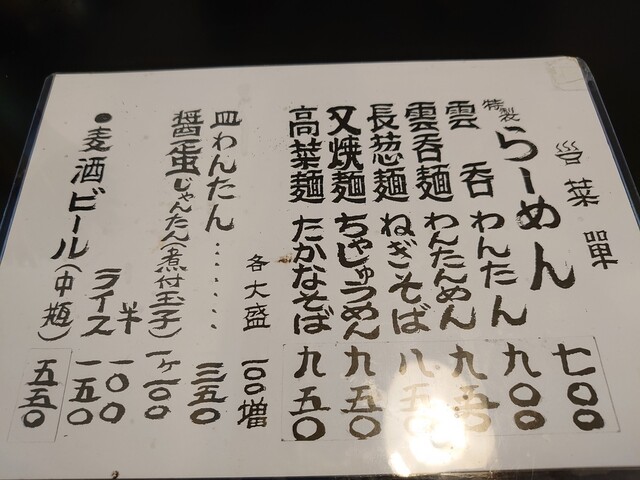 営菜單
特製らーめん 七〇〇
雲呑 わんたん 九〇〇
雲呑麺 わんたんめん 九五〇
長葱麺 ねぎそば 八五〇
叉焼麺 ちゃしゅうめん 九五〇
高菜麺 たかなそば 九五〇
各大盛 一〇〇増
皿わんたん…… 三五〇
醬蛋じゃんたん(煮付玉子) 一ヶ一〇〇
半 一〇〇
ライス 一五〇
●麦酒ビール(中瓶) 五五〇